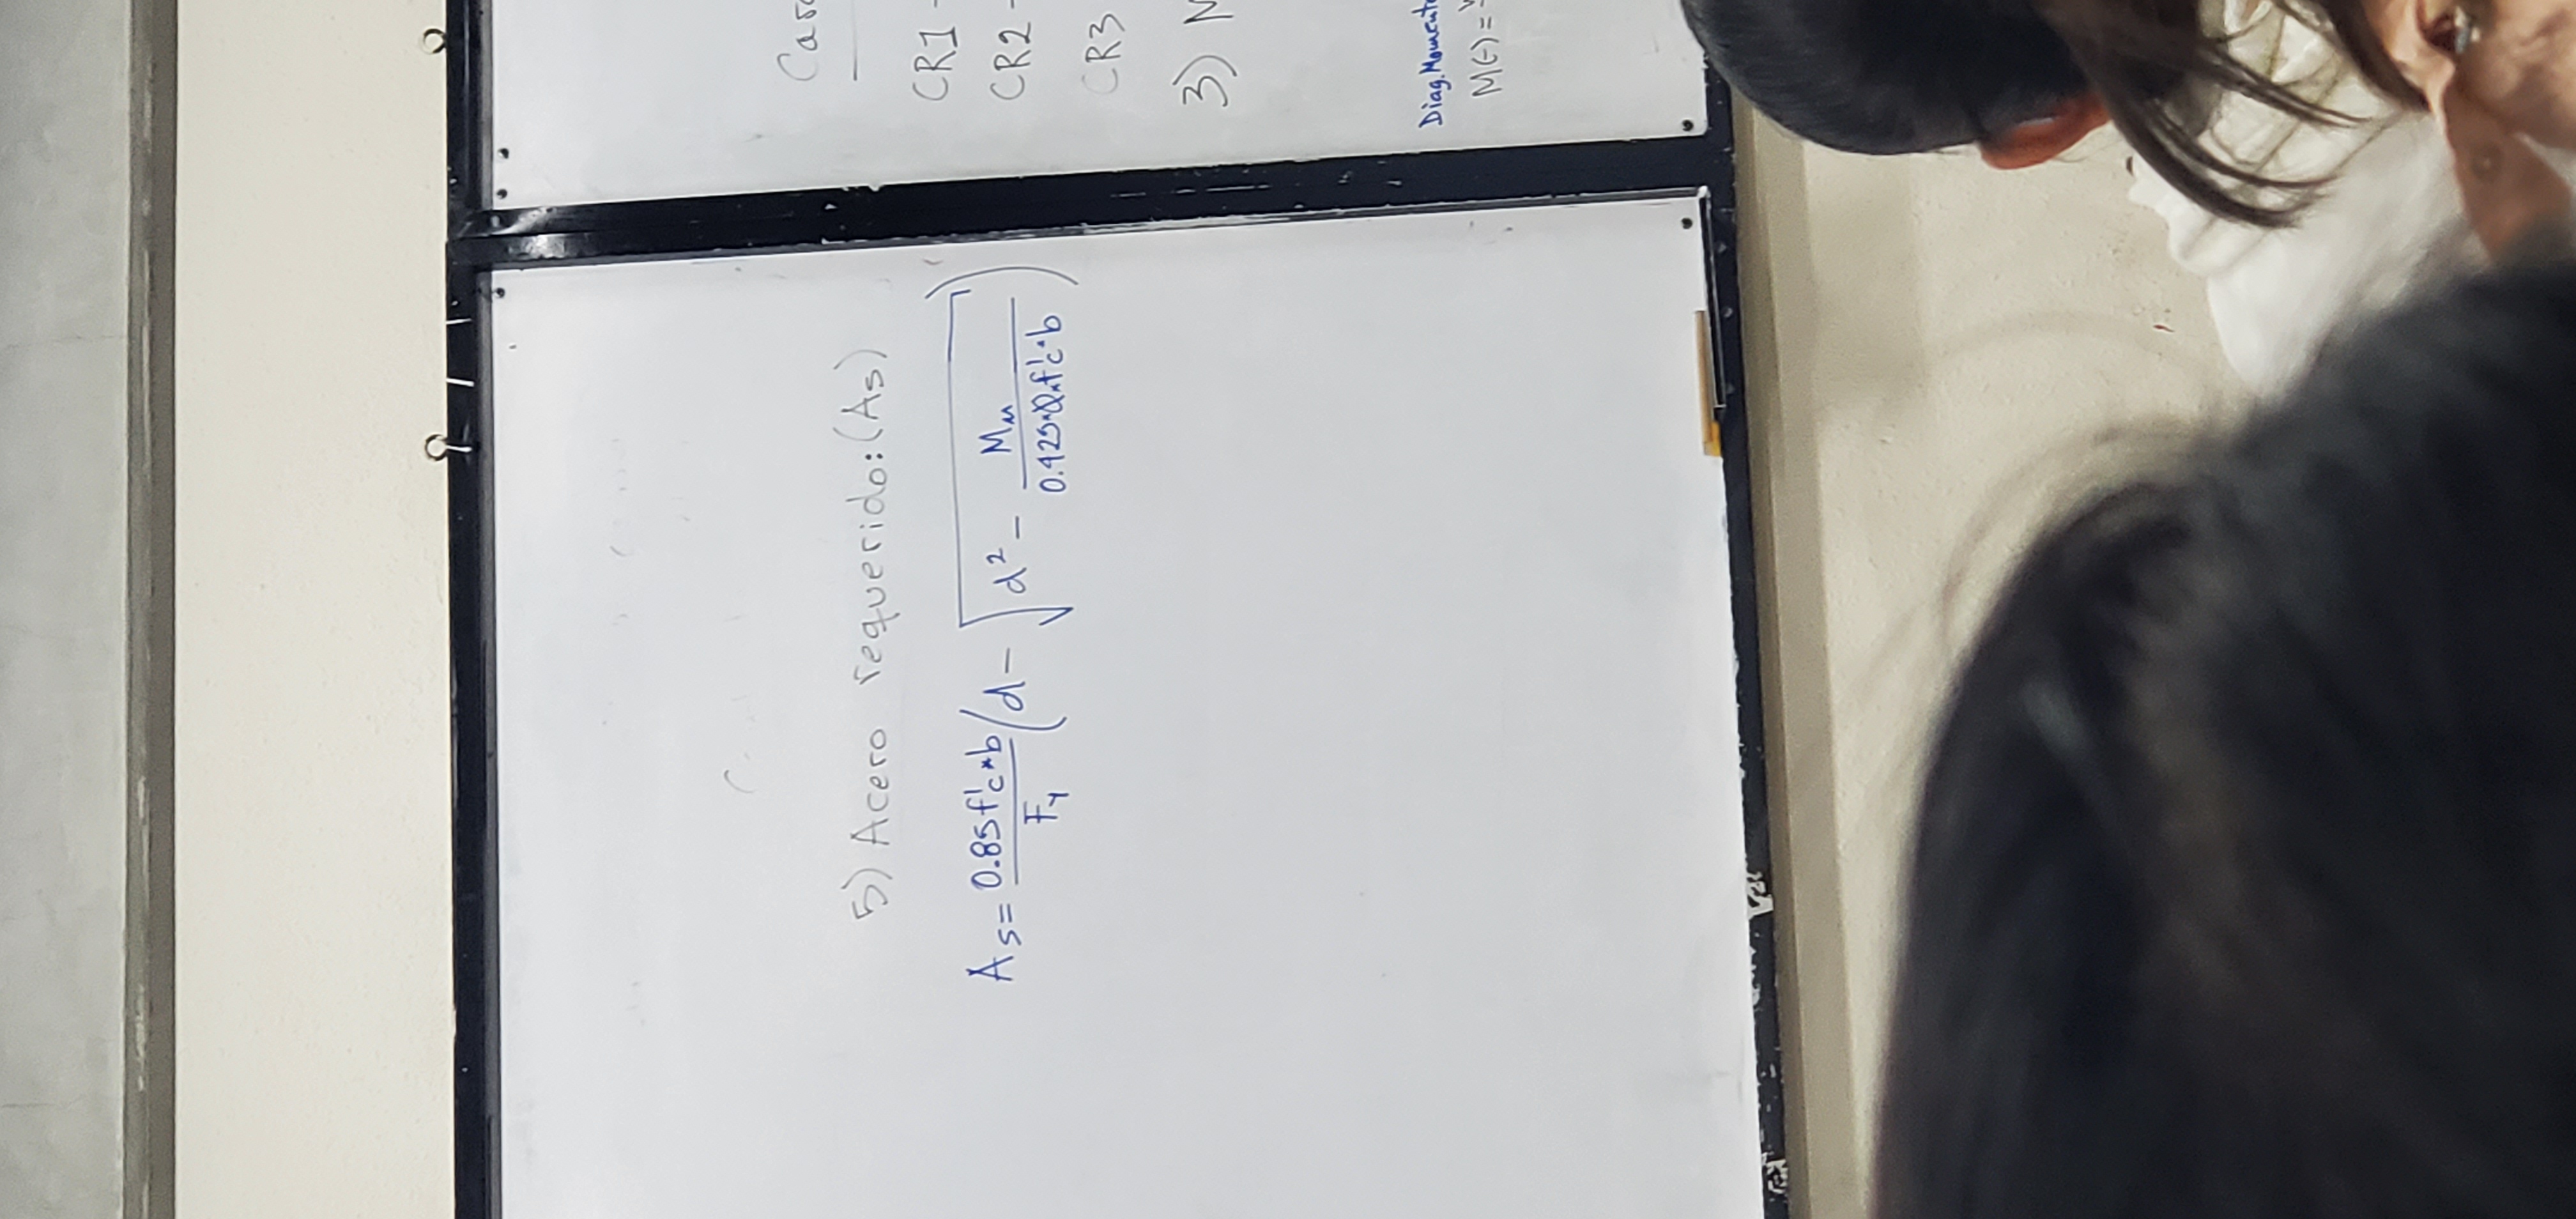 5) Acero requerido: (As)
As = 0.85 f'c * b / Fy (d - √(d² - Mu / 0.425 * Ø * f'c * b))
CR1 -
CR2 -
CR3
3)
Diag. Moment
M(-) =